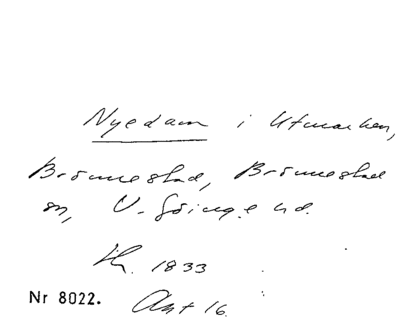 Nyedam i Utmarken,
Brönnestad, Brönnestad
sn, V. Göinge hd.
1833
Nr 8022. Akt 16.